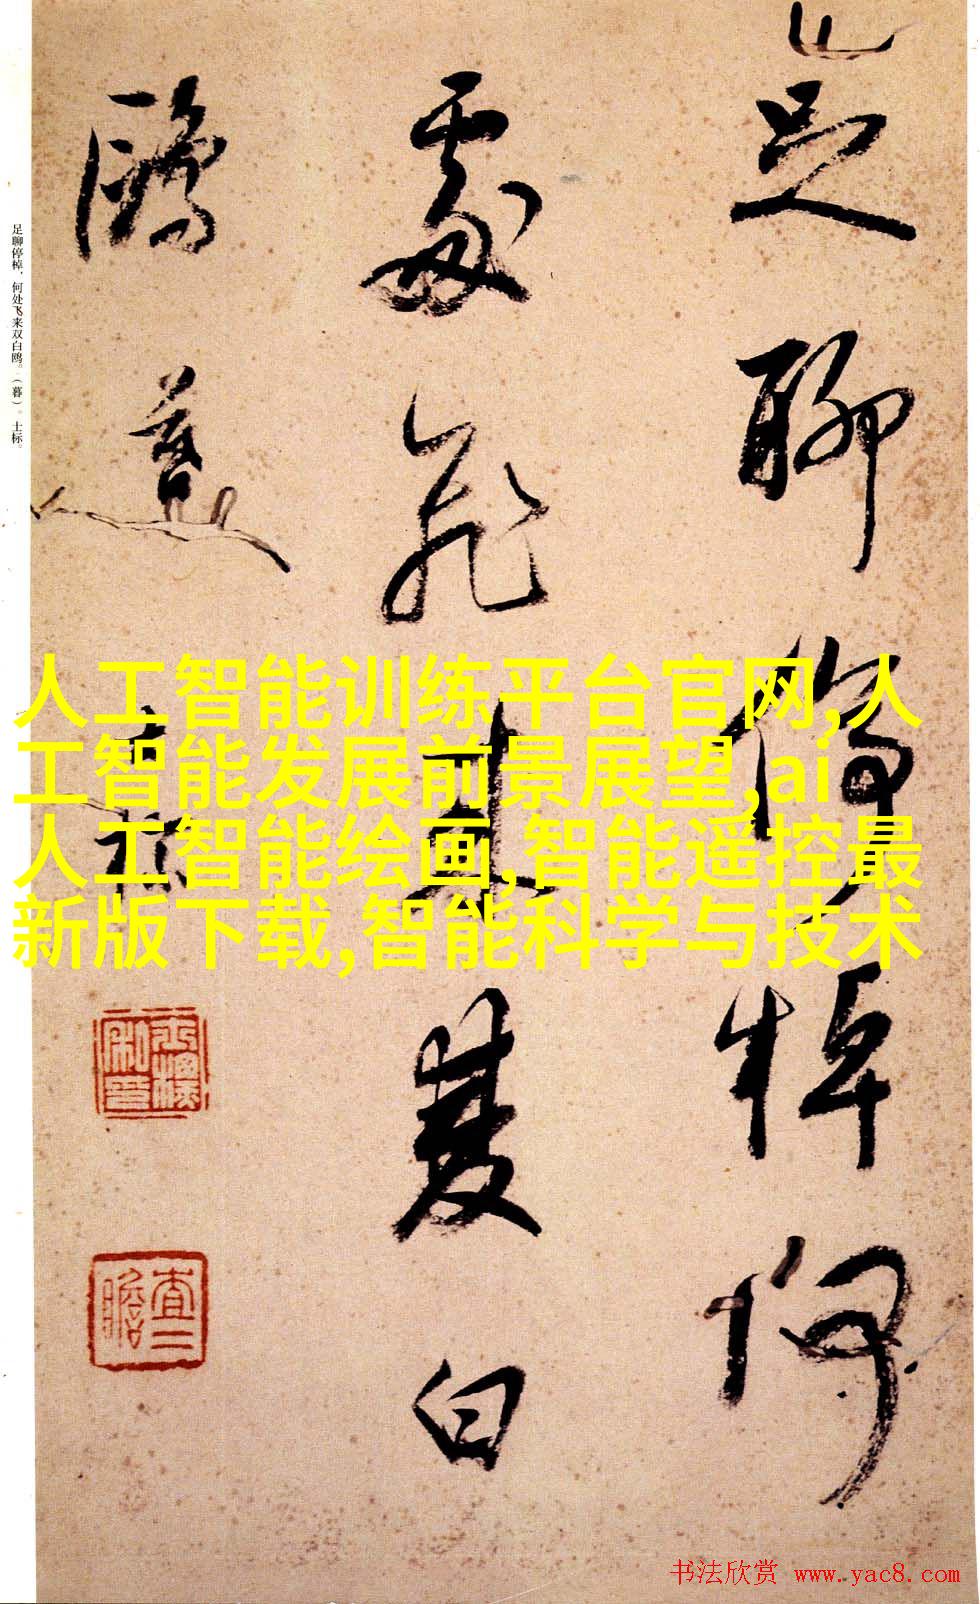 足聊停棹何
處飛来雙白
鷗 暮
士标
足聊停棹，何处飞来双白鸥。（暮）。士标。
人工智能训练平台官网,人
工智能发展前景展望,ai
人工智能绘画,智能遥控最
新版下载,智能科学与技术
查二瞻
书法欣赏 www.yac8.com